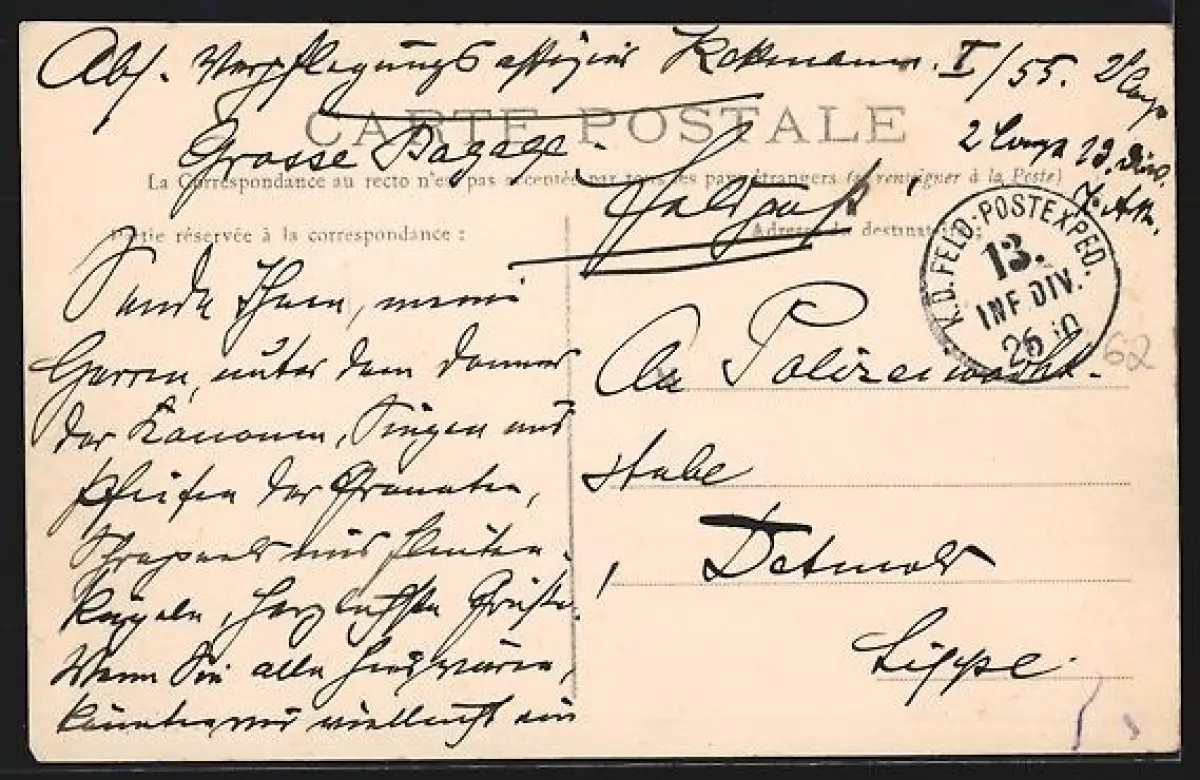 Abs. Verpflegungsoffizier Kokmann. I/55.
2 Comp 13. Div.
7. A.K.
CARTE POSTALE
Grosse Bagage.
La Correspondance au recto n'est pas acceptée par tous les pays étrangers (se renseigner à la Poste)
Feldpost!
Partie réservée à la correspondance :
Adresse du destinataire :
K.D. FELD-POSTEXPED.
13.
INF. DIV.
26 10
62
Sende Ihnen, meine
Herren, unter dem Donner
der Kanonen, Singen und
Pfeifen der Granaten,
Schrapnels und Flinten-
kugeln, herzlichste Grüße.
Wenn Sie alle hier wären,
könnten wir vielleicht ein
An Polizeiwacht-
stube
Detmold
Lippe